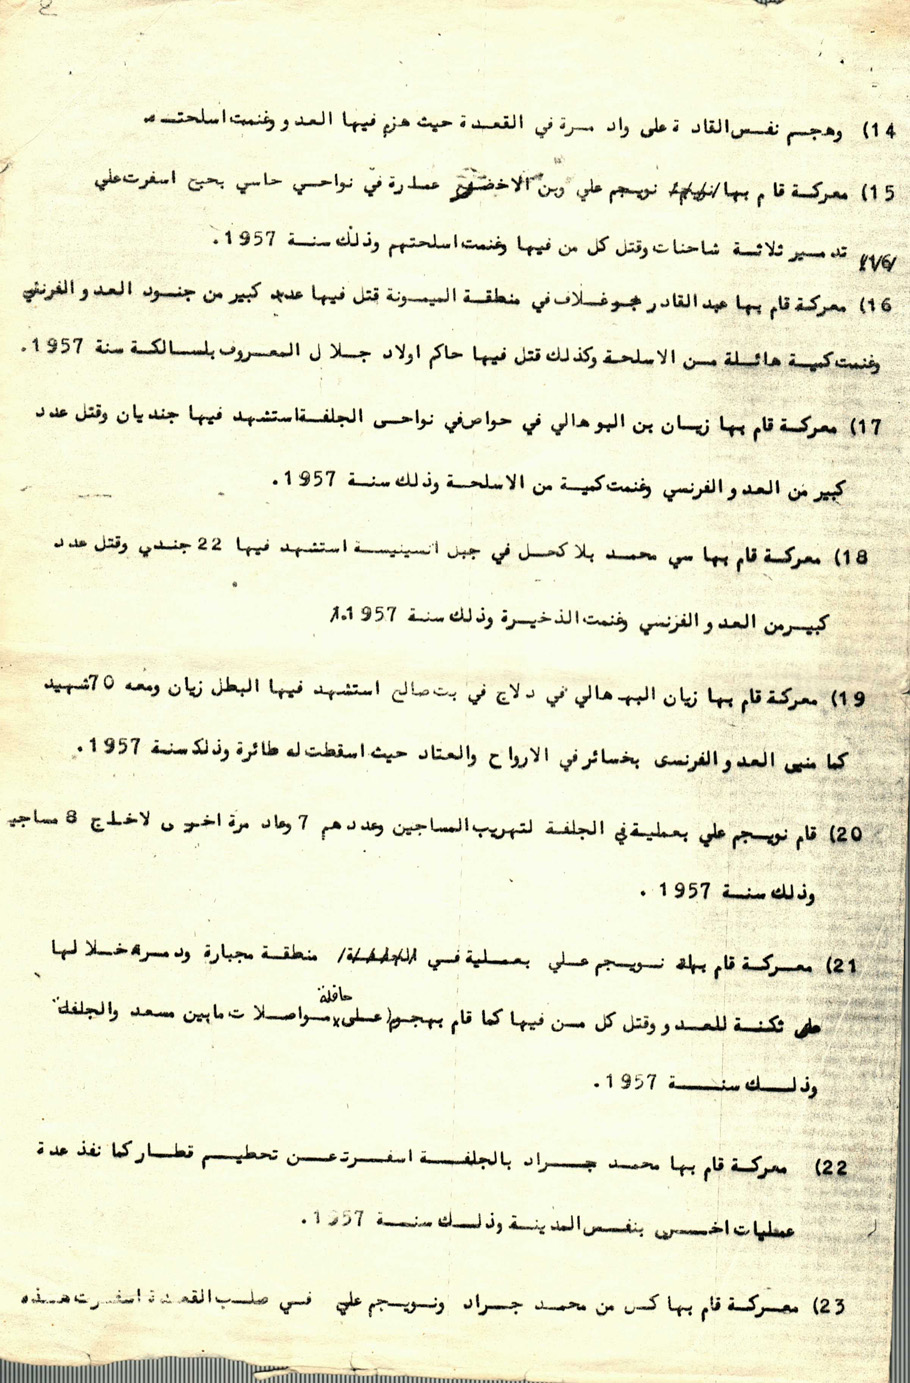 14) وهجم نفس القادة على واد مرة في القعدة حيث هزم فيها العدو وغنمت اسلحتـه
15) معركة قام بها نويجم علي وبن الاخضر عمارة في نواحي حاسي بحبح اسفرت علي
تدمير ثلاثة شاحنات وقتل كل من فيها وغنمت اسلحتهم وذلك سنة 1957.
16) معركة قام بها عبد القادر بحوغلاف في منطقة الميمونة قتل فيها عدد كبير من جنود العدو الفرنسي
وغنمت كمية هائلة من الاسلحة وكذلك قتل فيها حاكم اولاد جلال المعروف بلسالكة سنة 1957.
17) معركة قام بها زيان بن البوهالي في حواص في نواحى الجلفة استشهد فيها جنديان وقتل عدد
كبير من العدو الفرنسي وغنمت كمية من الاسلحة وذلك سنة 1957.
18) معركة قام بها سي محمد بلاكحل في جبل انسينيسة استشهد فيها 22 جندي وقتل عدد
كبير من العدو الفرنسي وغنمت الذخيرة وذلك سنة 1957.
19) معركة قام بها زيان البهالي في دلاج في بت صالح استشهد فيها البطل زيان ومعه 70 شهيد
كما منيى العدو الفرنسى بخسائر في الارواح والعتاد حيث اسقطت له طائرة وذلك سنة 1957.
20) قام نويجم علي بعملية في الجلفة لتهريب المساجين وعددهم 7 وعاد مرة اخرى لاخراج 8 مساجيـ
وذلك سنة 1957.
21) معركة قام بها نويجم علي بعملية في منطقة مجبارة ودمر خلالها
ثكنة للعدو وقتل كل من فيها كما قام بهجوم على حافلة مواصلات مابين مسعد والجلفة
وذلك سنة 1957.
22) معركة قام بها محمد جراد بالجلفة اسفرت عن تحطيم قطار كما نفذ عدة
عمليات اخرى بنفس المدينة وذلك سنة 1957.
23) معركة قام بها كل من محمد جراد ونويجم علي في صلب القعدة اسفرت هذه